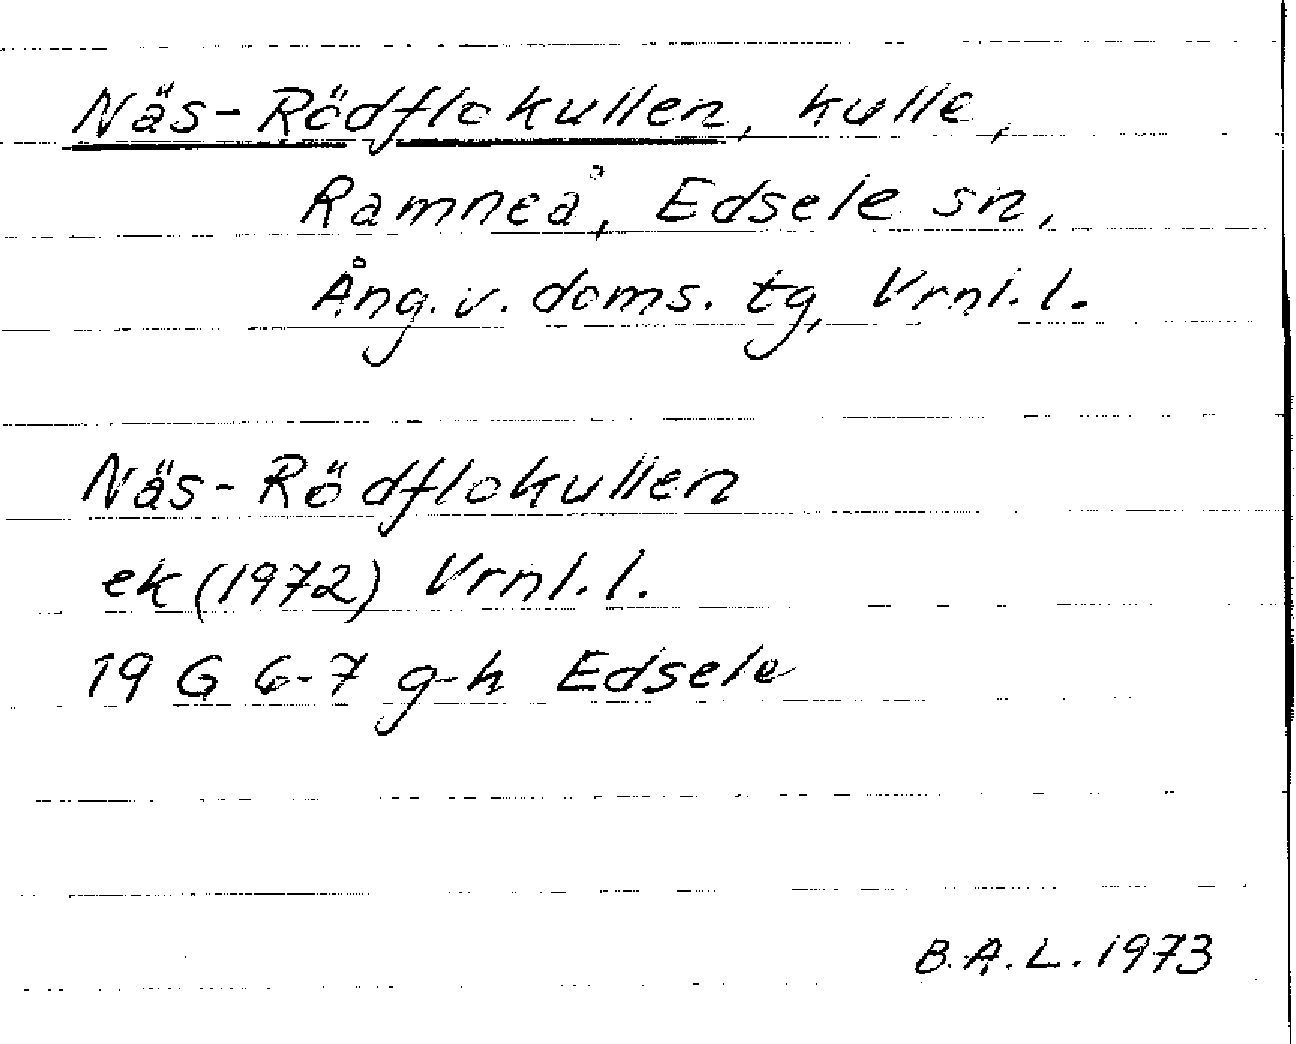 Näs-Rödflokullen, kulle,
Ramneå, Edsele sn,
Ång. v. doms. tg, Vrnl. l.
Näs-Rödflokullen
ek (1972) Vrnl. l.
19 G 6-7 g-h Edsele
B.A.L. 1973